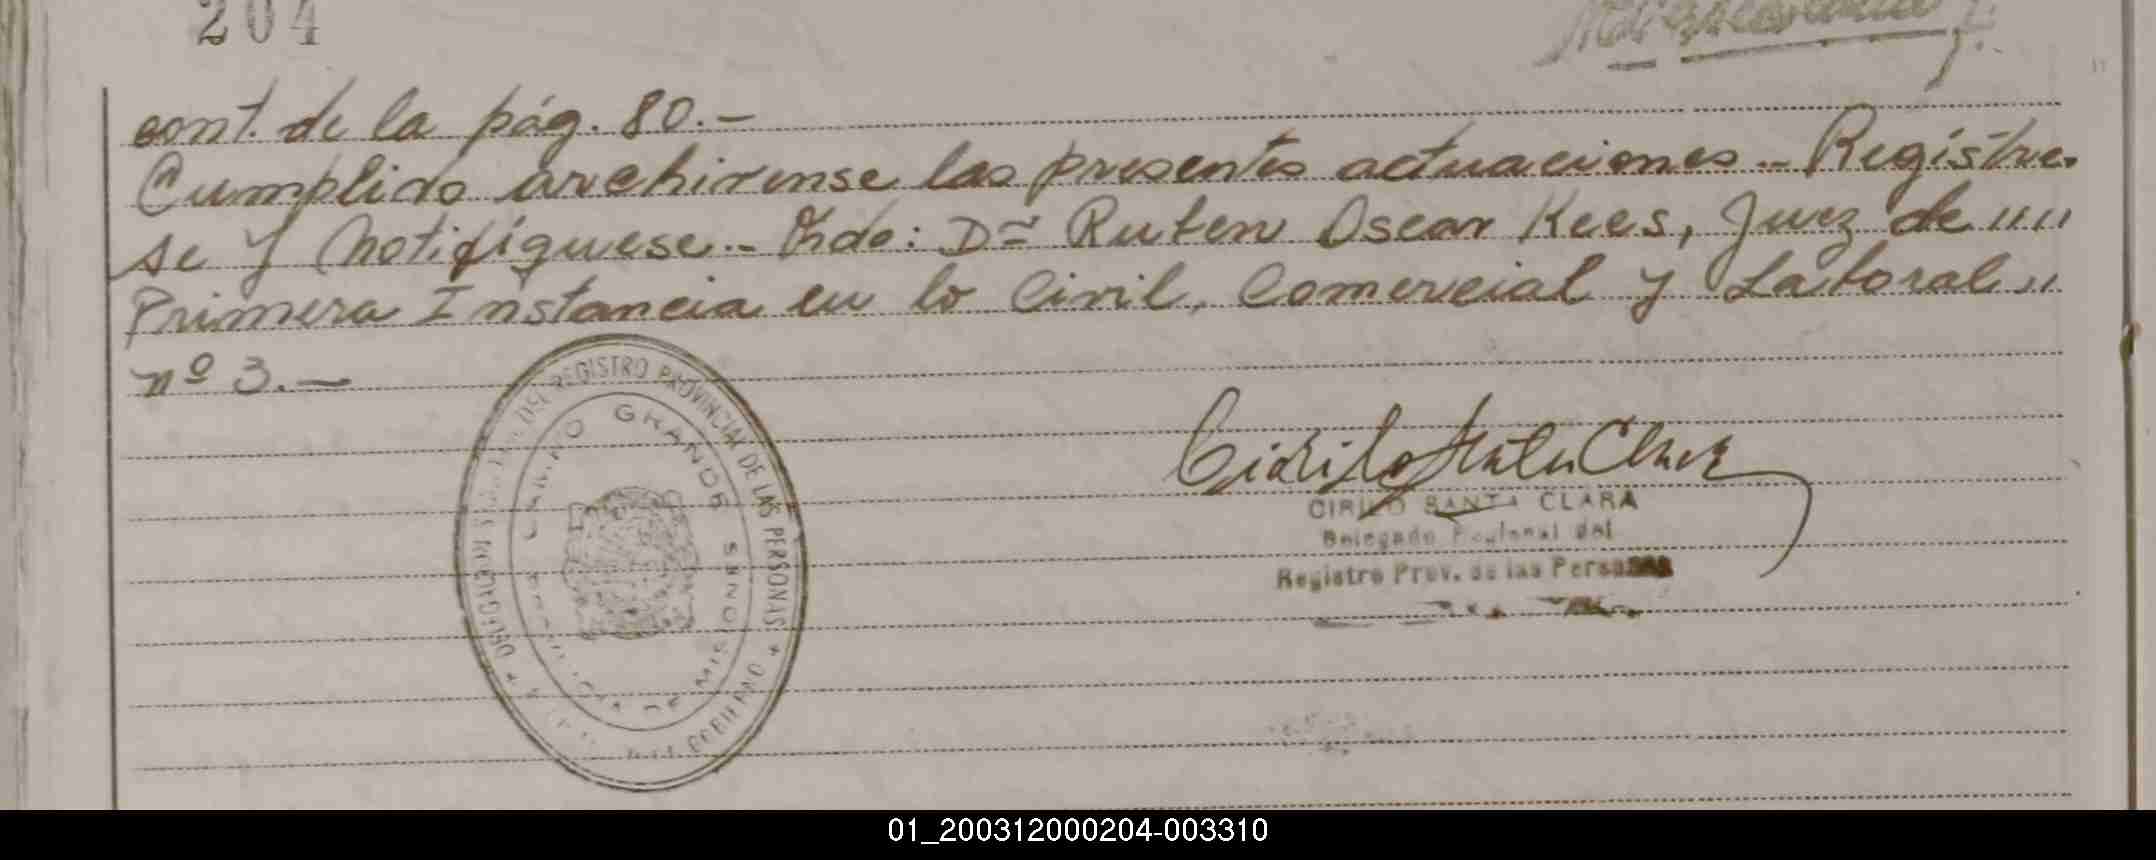 204
cont. de la pág. 80.-
Cumplido archivense las presentes actuaciones.- Regístre-
se y notifíquese.- Fdo: Dr Ruben Oscar Kees, Juez de """"
Primera Instancia en lo Civil, Comercial y Laboral ""
nº 3.-
DEL REGISTRO PROVINCIAL DE LAS PERSONAS
GOBIERNO
GRANDE
MISIONES
CIRILO SANTA CLARA
Delegado Regional del
Registro Prov. de las Personas
01_200312000204-003310